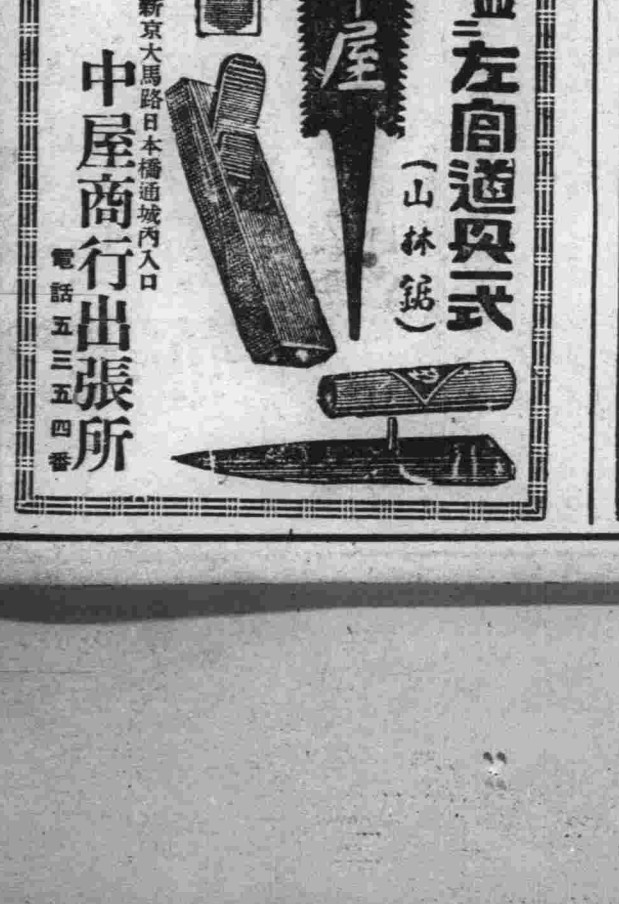 左官道具一式
(山林鋸)
屋
新京大馬路日本橋通城内入口
中屋商行出張所
電話五三五四番